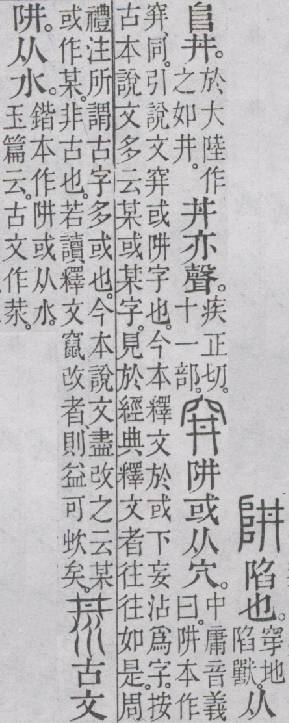 阱陷也。穿地陷獸。从
𨸏井。於大陸作之如井。井亦聲。疾正切。十一部。穽阱或从穴。中庸音義曰。阱本作
穽同。引說文穽或阱字也。今本釋文於或下妄沾爲字。按
古本說文多云某或某字。見於經典釋文者往往如是。周
禮注所謂古字多或也。今本說文盡改之云某
或作某。非古也。若讀釋文竄改者則益可㰞矣。汬古文
阱。从水。鍇本作阱或从水。玉篇云。古文作汬。